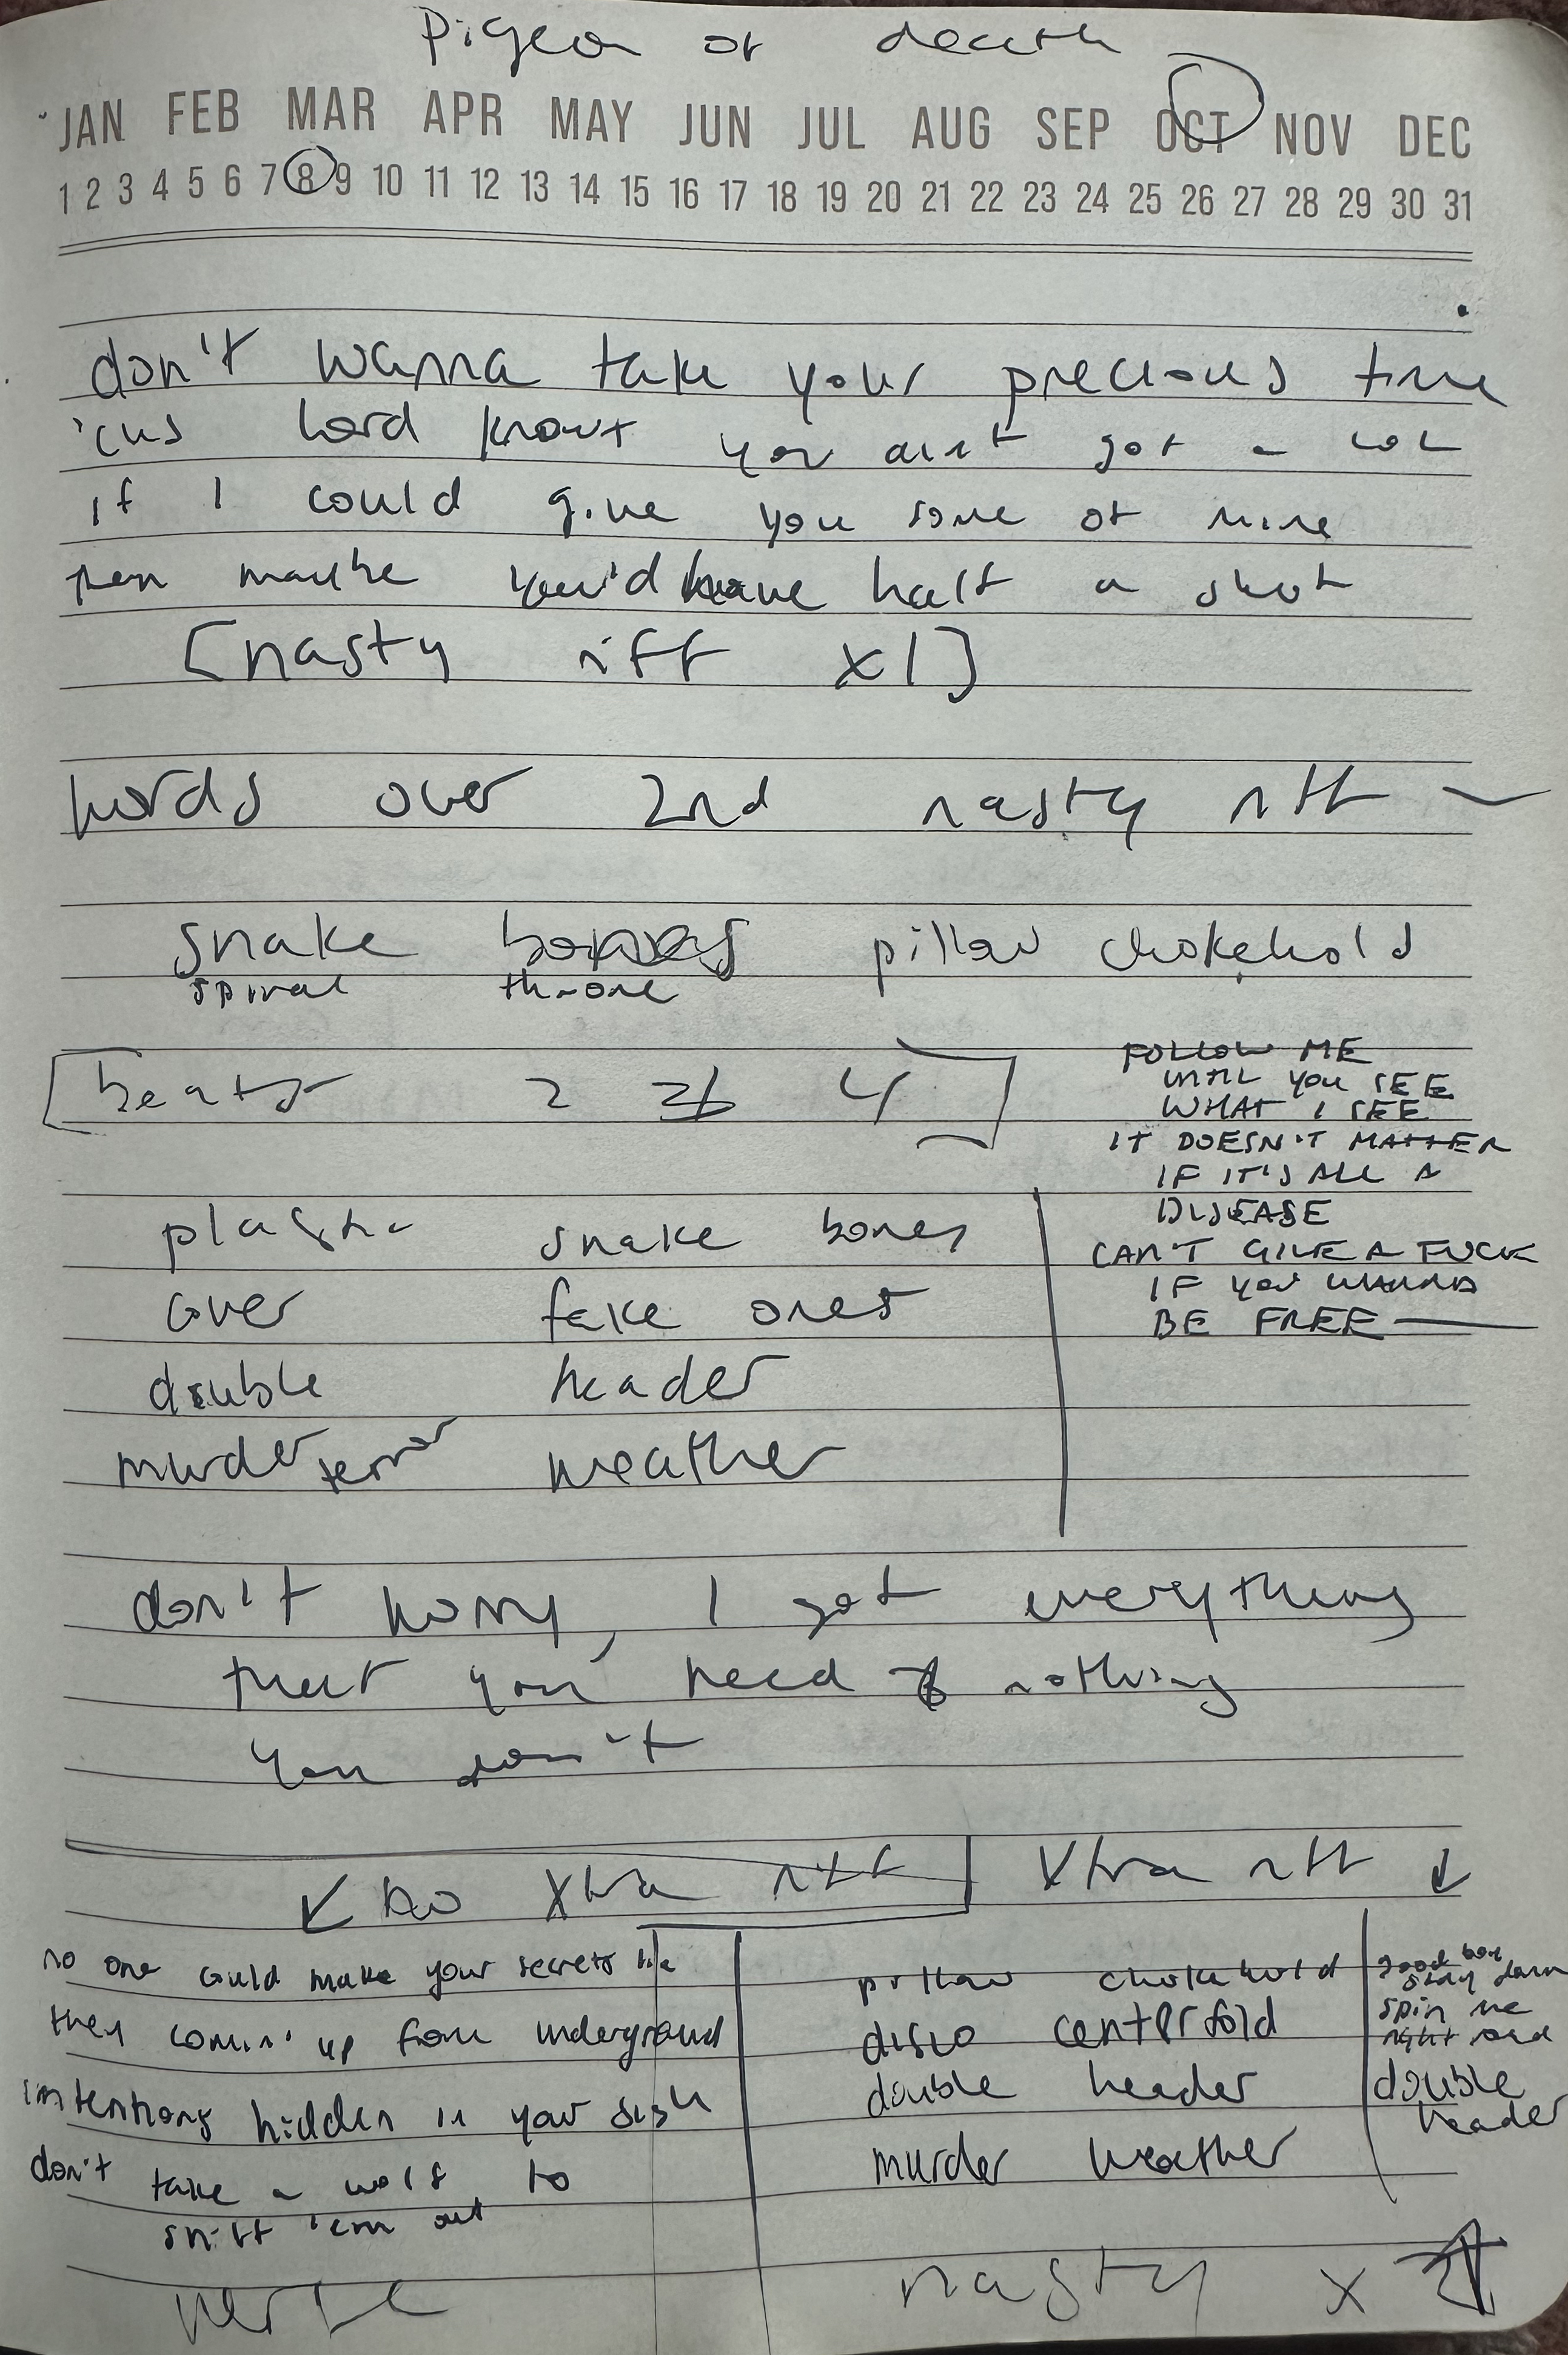 Pigeon of death
JAN FEB MAR APR MAY JUN JUL AUG SEP OCT NOV DEC
1 2 3 4 5 6 7 8 9 10 11 12 13 14 15 16 17 18 19 20 21 22 23 24 25 26 27 28 29 30 31
don't wanna take your precious time
'cus lord knows you ain't got a lot
if I could give you some of mine
then maybe you'd have half a shot
[nasty riff x1]
words over 2nd nasty riff —
snake bones pillow chokehold
spiral throne
[beats 2 3 4]
FOLLOW ME
UNTIL YOU SEE
WHAT I SEE
IT DOESN'T MATTER
IF IT'S ALL A
DISEASE
CAN'T GIVE A FUCK
IF YOU WANNA
BE FREE —
plastic snake bones
over fake ones
double header
murder terror weather
don't worry, I got everything
that you need & nothing
you don't
↙ no Xtra riff
Xtra riff ↓
no one could make your secrets lie
they comin' up from underground
intentions hidden in your sigh
don't take a wolf to
sniff 'em out
verse
pillow chokehold
disco centerfold
double header
murder weather
good boy
stay down
spin me
right road
double
header
nasty x